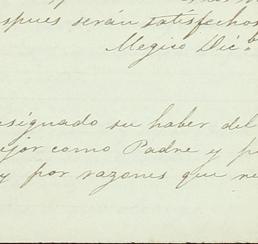 spues serán satisfechos
Megico Dic.
esignado su haber del
ejor como Padre y p
y por razones que re